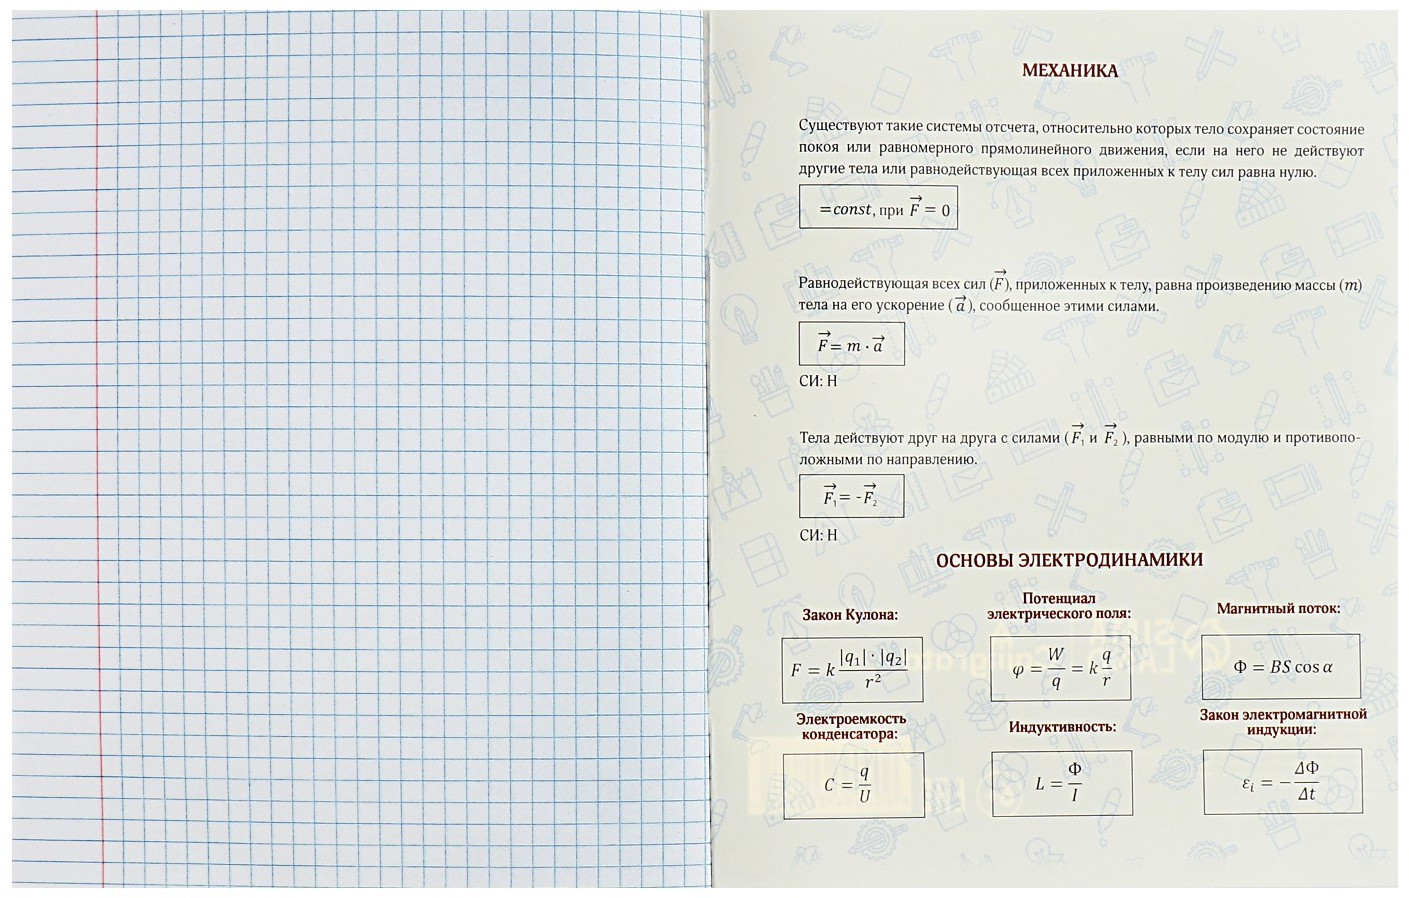 МЕХАНИКА
Существуют такие системы отсчета, относительно которых тело сохраняет состояние
покоя или равномерного прямолинейного движения, если на него не действуют
другие тела или равнодействующая всех приложенных к телу сил равна нулю.
=const, при F⃗ = 0
Равнодействующая всех сил (F⃗), приложенных к телу, равна произведению массы (m)
тела на его ускорение (a⃗), сообщенное этими силами.
F⃗ = m · a⃗
СИ: Н
Тела действуют друг на друга с силами (F⃗₁ и F⃗₂), равными по модулю и противопо-
ложными по направлению.
F⃗₁ = -F⃗₂
СИ: Н
ОСНОВЫ ЭЛЕКТРОДИНАМИКИ
Закон Кулона:
F = k |q₁| · |q₂| / r²
Потенциал
электрического поля:
φ = W/q = k q/r
Магнитный поток:
Ф = BS cos α
Электроемкость
конденсатора:
C = q/U
Индуктивность:
L = Ф/I
Закон электромагнитной
индукции:
εᵢ = − ΔФ/Δt